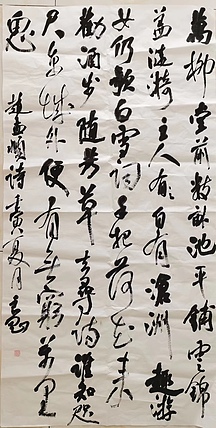 萬柳堂前數畝池平鋪雲錦
蓋漣漪主人有自有滄洲趣游
女仍歌白雪詞手把荷花来
勸酒步隨芳草去尋詩誰知咫
尺京城外便有無窮萬里
思
趙孟頫詩壬寅夏月